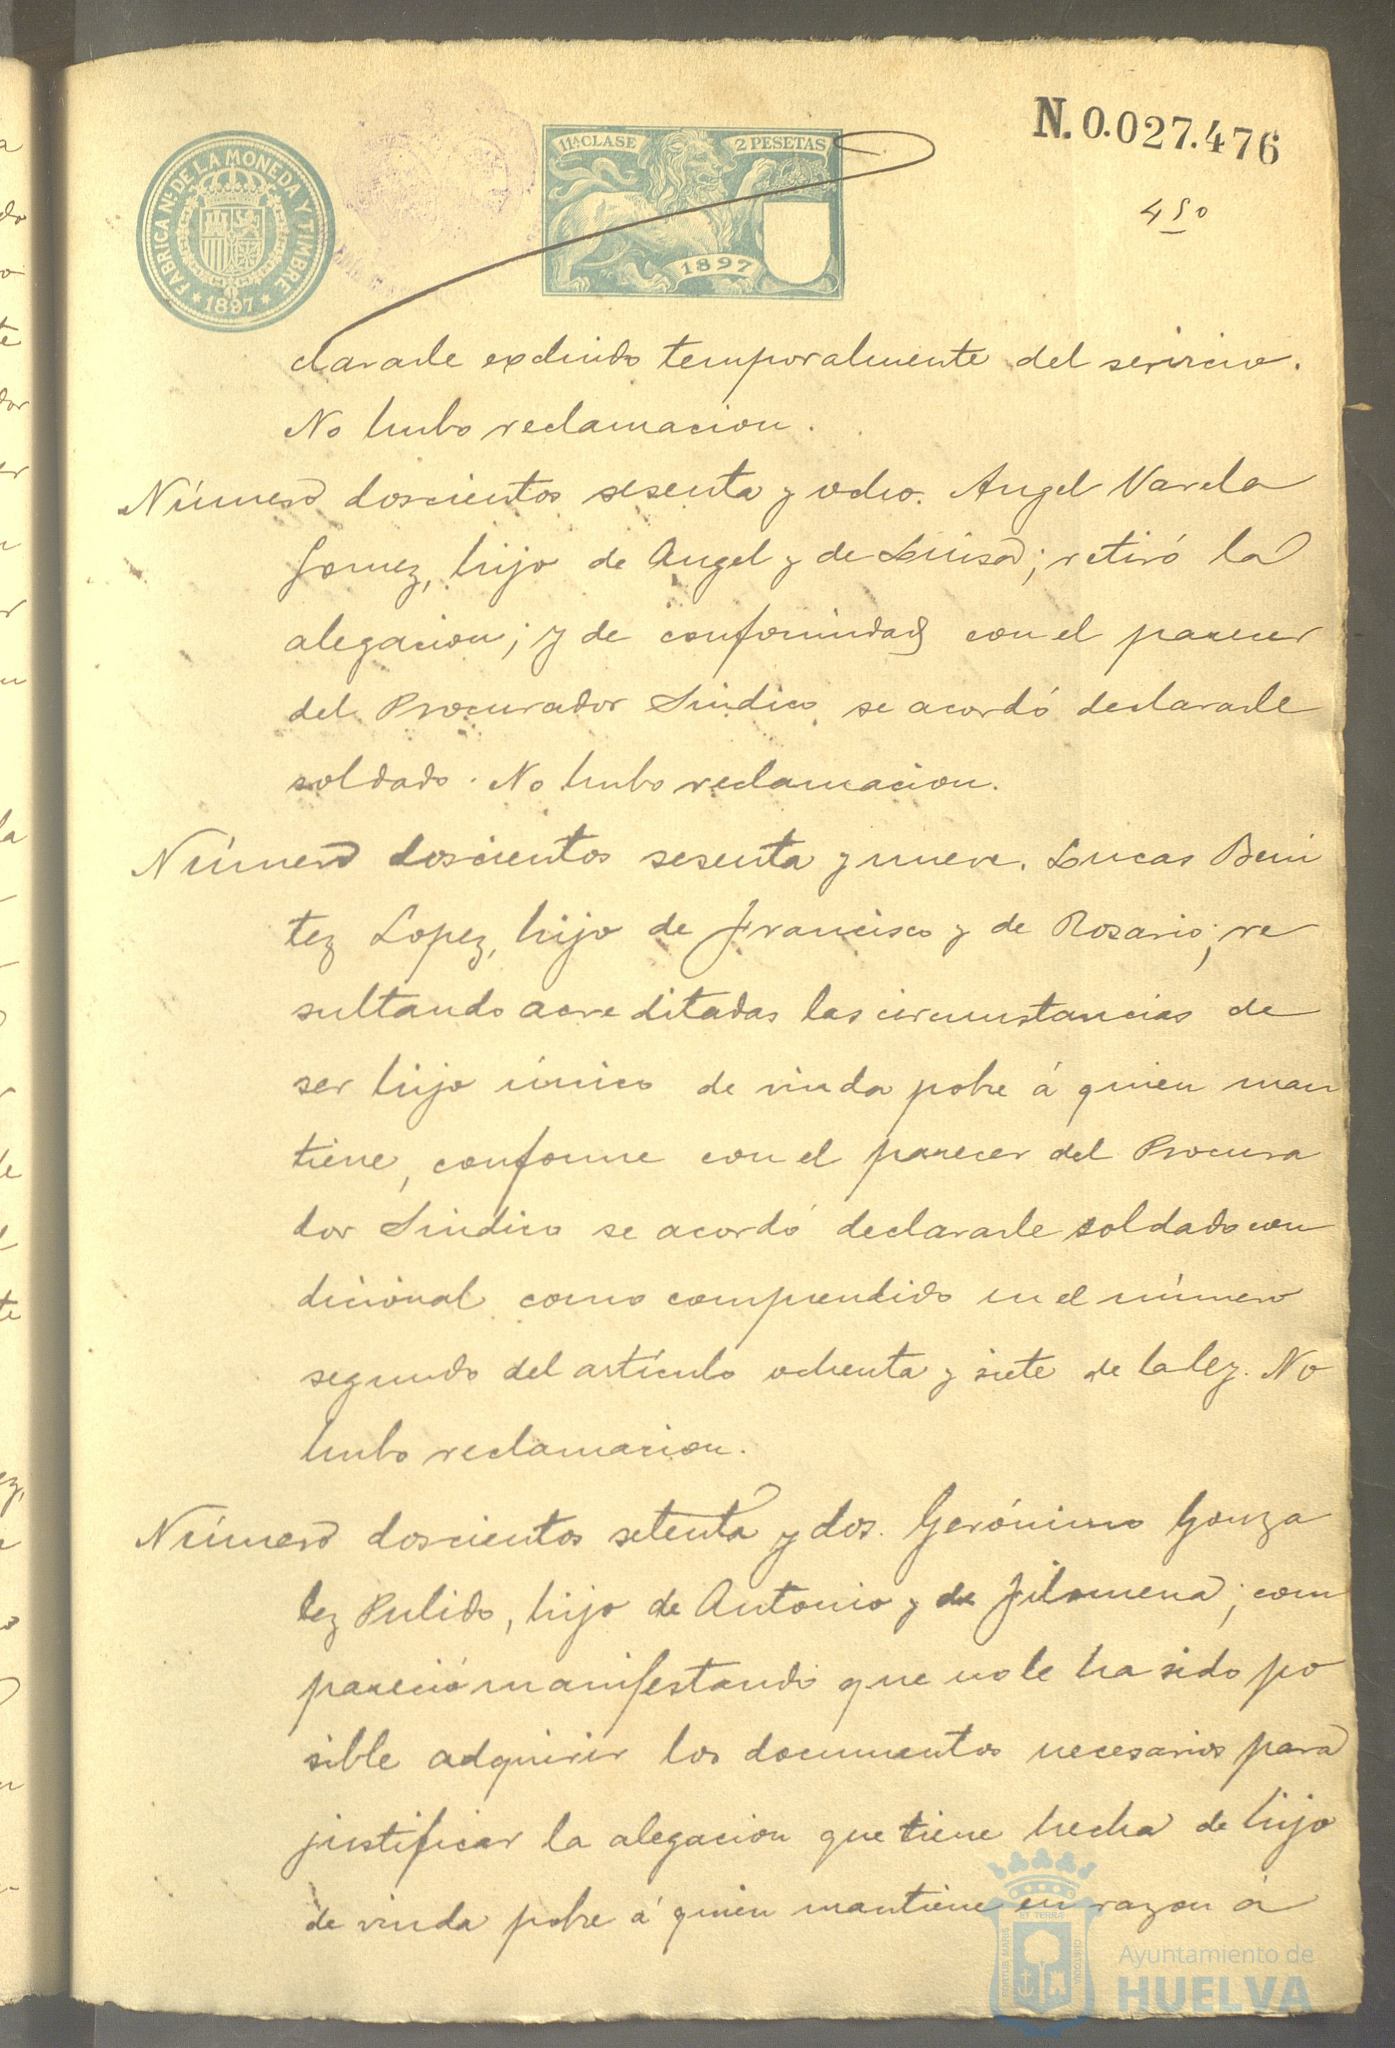 N. 0.027.476
FABRICA NL. DE LA MONEDA Y TIMBRE
* 1897 *
11ª CLASE 2 PESETAS
1897
450
clararle excluido temporalmente del servicio.
No hubo reclamacion.
Número doscientos sesenta y ocho. Angel Varela
Gomez, hijo de Angel y de Luisa; retiró la
alegacion; y de conformidad con el parecer
del Procurador Sindico se acordó declararle
soldado. No hubo reclamacion.
Número doscientos sesenta y nueve. Lucas Beni
tez Lopez, hijo de Francisco y de Rosario; re
sultando acreditadas las circunstancias de
ser hijo único de viuda pobre á quien man
tiene, conforme con el parecer del Procura
dor Sindico se acordó declararle soldado con
dicional como comprendido en el número
segundo del artículo ochenta y siete de la ley. No
hubo reclamacion.
Número doscientos setenta y dos. Gerónimo Gonza
lez Pulido, hijo de Antonio y de Filomena; com
pareció manifestando que no le ha sido po
sible adquirir los documentos necesarios para
justificar la alegacion que tiene hecha de hijo
de viuda pobre á quien mantiene en razon á
Ayuntamiento de
HUELVA